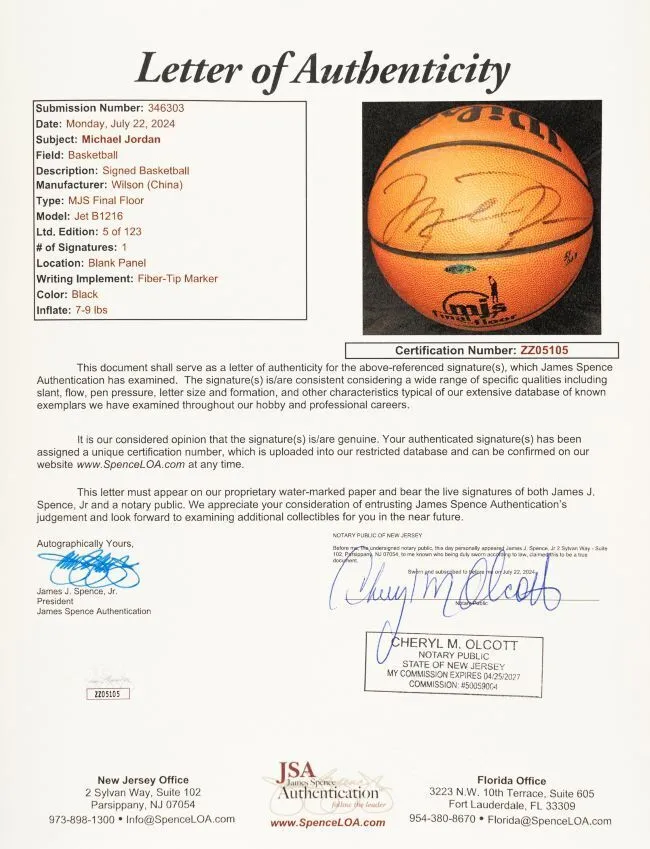 Letter of Authenticity
Submission Number: 346303
Date: Monday, July 22, 2024
Subject: Michael Jordan
Field: Basketball
Description: Signed Basketball
Manufacturer: Wilson (China)
Type: MJS Final Floor
Model: Jet B1216
Ltd. Edition: 5 of 123
# of Signatures: 1
Location: Blank Panel
Writing Implement: Fiber-Tip Marker
Color: Black
Inflate: 7-9 lbs
Wilson
mjs
final floor
Certification Number: ZZ05105
This document shall serve as a letter of authenticity for the above-referenced signature(s), which James Spence
Authentication has examined. The signature(s) is/are consistent considering a wide range of specific qualities including
slant, flow, pen pressure, letter size and formation, and other characteristics typical of our extensive database of known
exemplars we have examined throughout our hobby and professional careers.
It is our considered opinion that the signature(s) is/are genuine. Your authenticated signature(s) has been
assigned a unique certification number, which is uploaded into our restricted database and can be confirmed on our
website www.SpenceLOA.com at any time.
This letter must appear on our proprietary water-marked paper and bear the live signatures of both James J.
Spence, Jr and a notary public. We appreciate your consideration of entrusting James Spence Authentication's
judgement and look forward to examining additional collectibles for you in the near future.
Autographically Yours,
James J. Spence, Jr.
President
James Spence Authentication
NOTARY PUBLIC OF NEW JERSEY
Before me, the undersigned notary public, this day personally appeared James J. Spence, Jr 2 Sylvan Way - Suite
102, Parsippany, NJ 07054, to me known who being duly sworn according to law, claimed this to be a true
document.
Sworn and subscribed to before me on July 22, 2024
Cheryl M Olcott
Notary Public
CHERYL M. OLCOTT
NOTARY PUBLIC
STATE OF NEW JERSEY
MY COMMISSION EXPIRES 04/25/2027
COMMISSION: #50059064
ZZ05105
New Jersey Office
2 Sylvan Way, Suite 102
Parsippany, NJ 07054
973-898-1300 • Info@SpenceLOA.com
JSA
James Spence
Authentication
follow the leader
www.SpenceLOA.com
Florida Office
3223 N.W. 10th Terrace, Suite 605
Fort Lauderdale, FL 33309
954-380-8670 • Florida@SpenceLOA.com